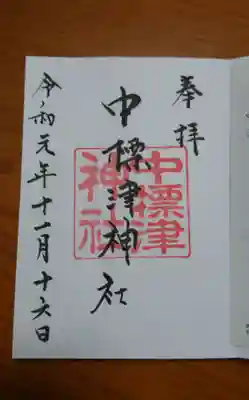 奉拝
中標津神社
中標津
神社
令和元年十一月十六日